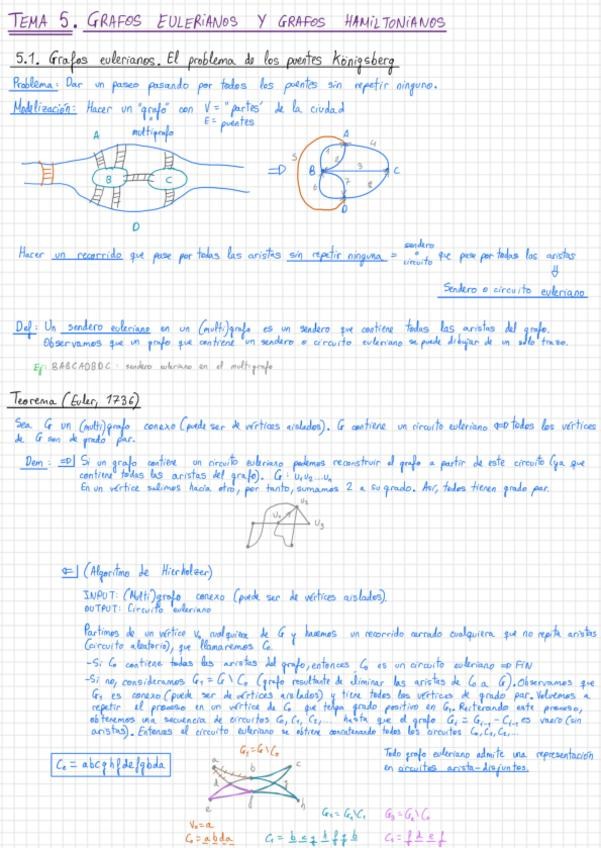 TEMA 5. GRAFOS EULERIANOS Y GRAFOS HAMILTONIANOS
5.1. Grafos eulerianos. El problema de los puentes Königsberg
Problema: Dar un paseo pasando por todos los puentes sin repetir ninguno.
Modelización: Hacer un "grafo" con V = "partes" de la ciudad
multigrafo E = puentes
A
B C
D
A
1 2 4
5 B 3 C
6 7 8
D
Hacer un recorrido que pase por todas las aristas sin repetir ninguna = sendero o circuito que pase por todas las aristas
Sendero o circuito euleriano
Def: Un sendero euleriano en un (multi)grafo es un sendero que contiene todas las aristas del grafo.
Observamos que un grafo que contiene un sendero o circuito euleriano se puede dibujar de un solo trazo.
Ej: BABCADBDC: sendero euleriano en el multigrafo
Teorema (Euler, 1736)
Sea G un (multi)grafo conexo (puede ser de vértices aislados). G contiene un circuito euleriano ⇔ todos los vértices
de G son de grado par.
Dem: ⇒ Si un grafo contiene un circuito euleriano podemos reconstruir el grafo a partir de este circuito (ya que
contiene todas las aristas del grafo). G: u₁u₂...uₙ
En un vértice salimos hacia otro, por tanto, sumamos 2 a su grado. Así, todos tienen grado par.
u₂
u₁ u₃
⇐ (Algoritmo de Hierholzer)
INPUT: (Multi)grafo conexo (puede ser de vértices aislados).
OUTPUT: Circuito euleriano
Partimos de un vértice v₀ cualquiera de G y hacemos un recorrido cerrado cualquiera que no repita aristas
(circuito aleatorio), que llamaremos C₀
-Si C₀ contiene todas las aristas del grafo, entonces C₀ es un circuito euleriano ⇒ FIN
-Si no, consideramos G₁ = G \ C₀ (grafo resultante de eliminar las aristas de C₀ a G). Observamos que
G₁ es conexo (puede ser de vértices aislados) y tiene todos los vértices de grado par. Volvemos a
repetir el proceso en un vértice de C₀ que tenga grado positivo en G₁. Reiterando este proceso,
obtenemos una secuencia de circuitos C₀, C₁, C₂,... hasta que el grafo Gᵢ = Gᵢ₋₁ - Cᵢ₋₁ es vacío (sin
aristas). Entonces el circuito euleriano se obtiene concatenando todos los circuitos C₀, C₁, C₂,...
G₁ = G \ C₀
Todo grafo euleriano admite una representación
en circuitos arista-disjuntos.
a b c
d g
e f h
G₂ = G₁ \ C₁ G₃ = G₂ \ C₂
v₀ = a
C₀ = abda